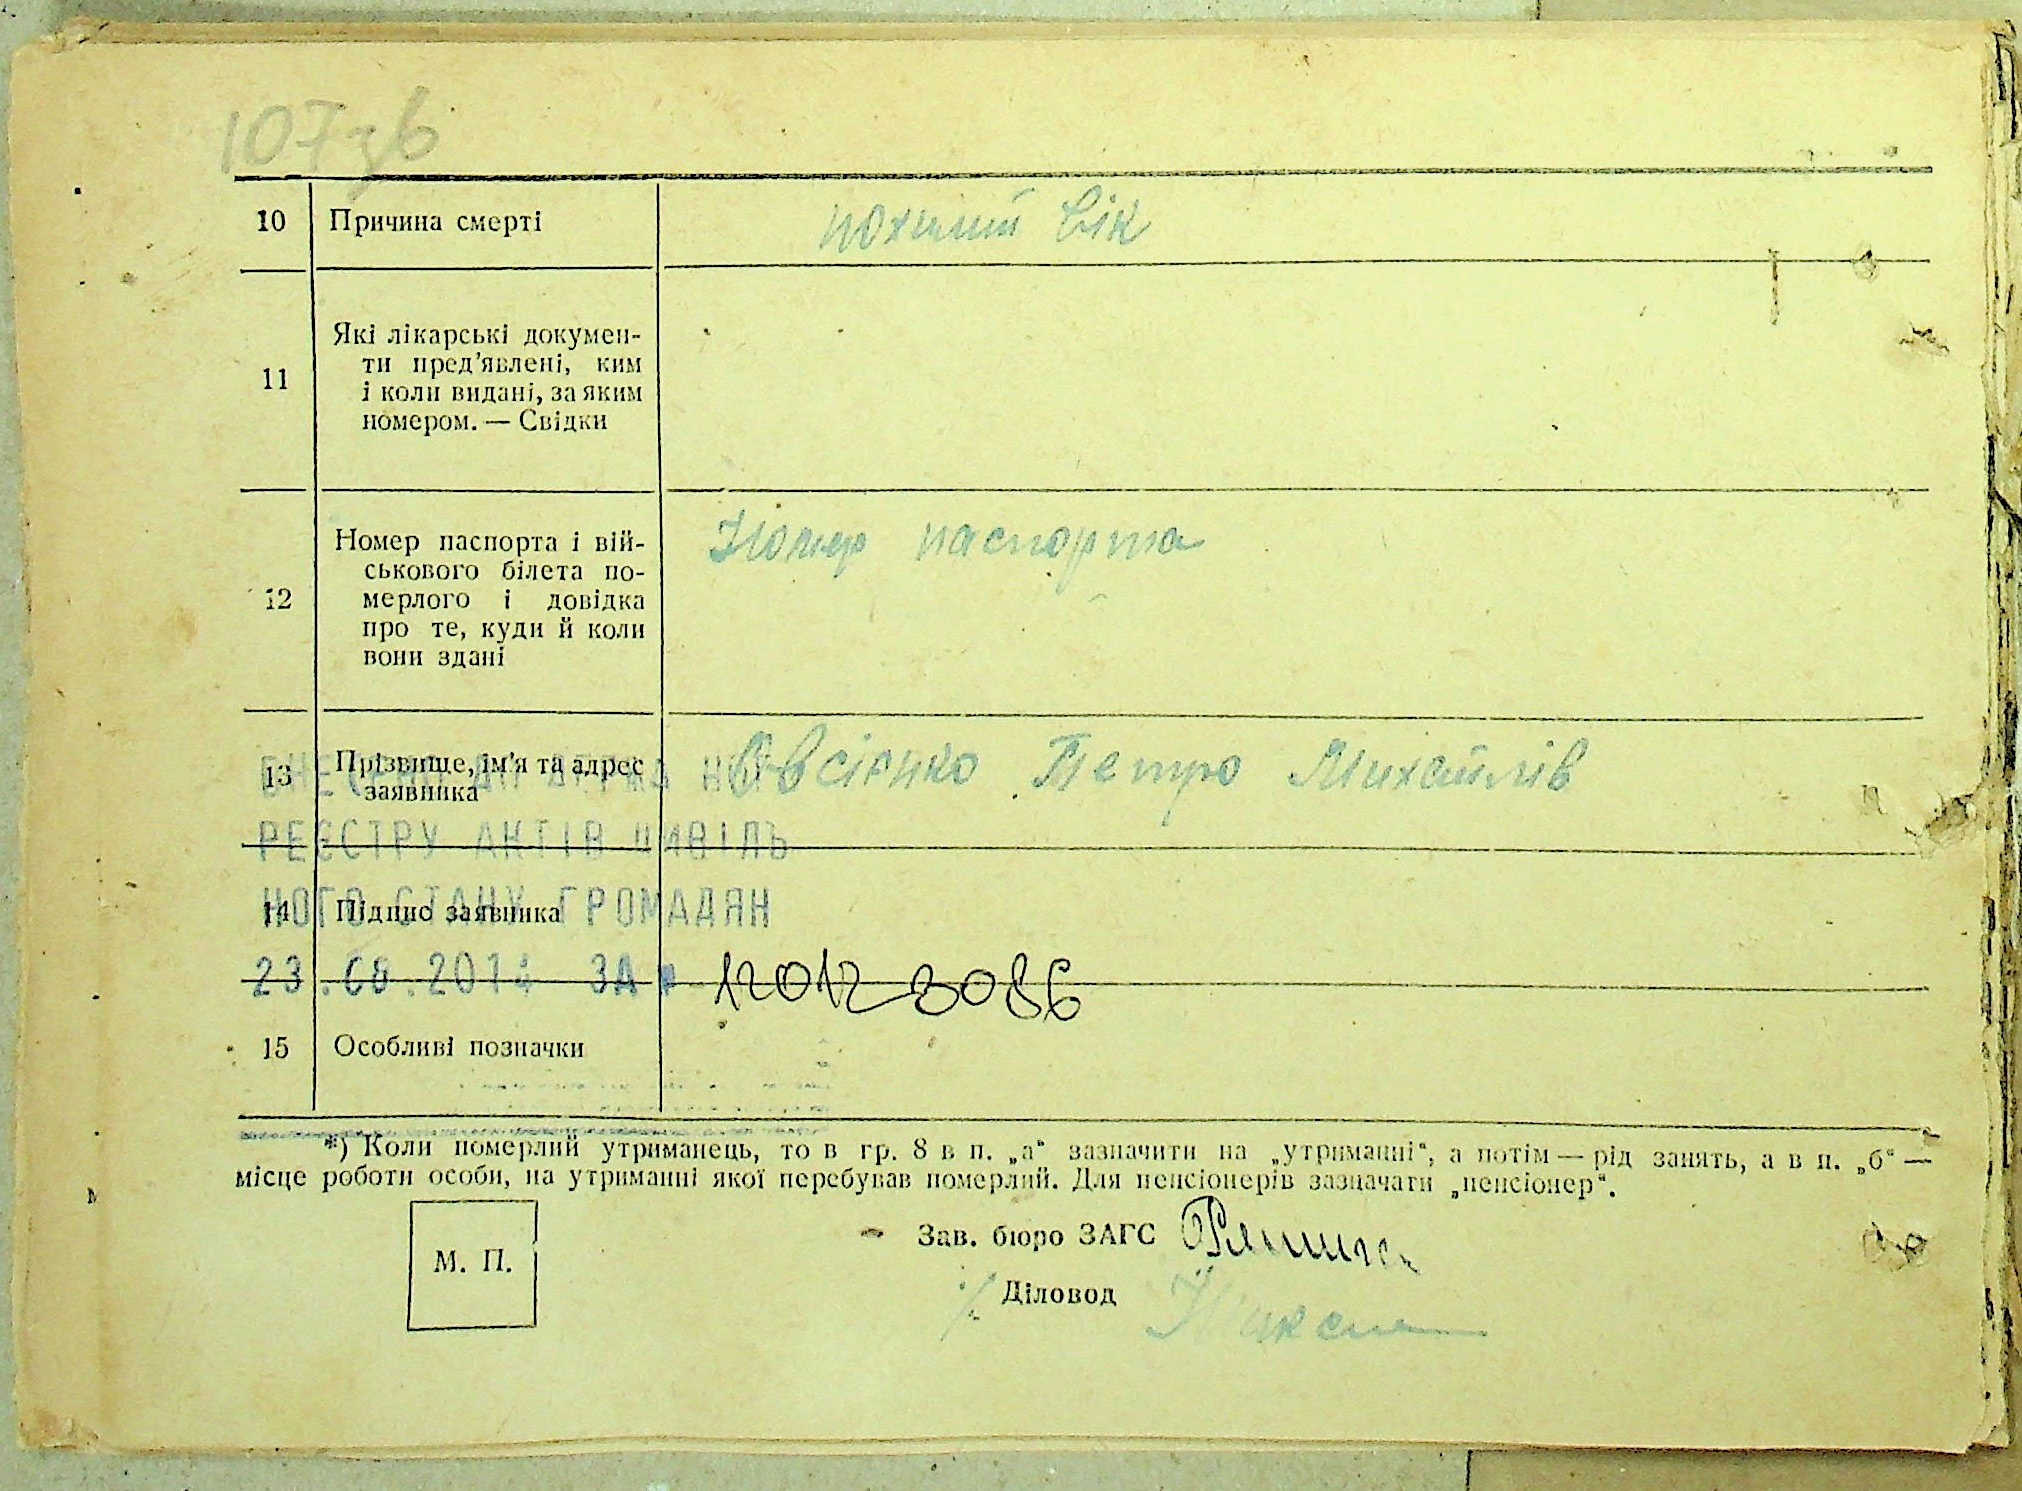 107зв
10 Причина смерті похилий вік
11 Які лікарські докумен-
ти пред'явлені, ким
і коли видані, за яким
номером. — Свідки
12 Номер паспорта і вій-
ськового білета по-
мерлого і довідка
про те, куди й коли
вони здані
Номер паспорта
13 Прізвище, ім'я та адрес
заявника
Овсієнко Петро Михайлів
РЕЄСТРУ АКТІВ ЦИВІЛЬ
НОГО СТАНУ ГРОМАДЯН
14 Підпис заявника
23.08.2014 ЗА 12012 3086
15 Особливі позначки
*) Коли померлий утриманець, то в гр. 8 в п. „а“ зазначити на „утриманні“, а потім — рід занять, а в п. „б“ —
місце роботи особи, на утриманні якої перебував померлий. Для пенсіонерів зазначати „пенсіонер“.
М. П.
Зав. бюро ЗАГС
Діловод